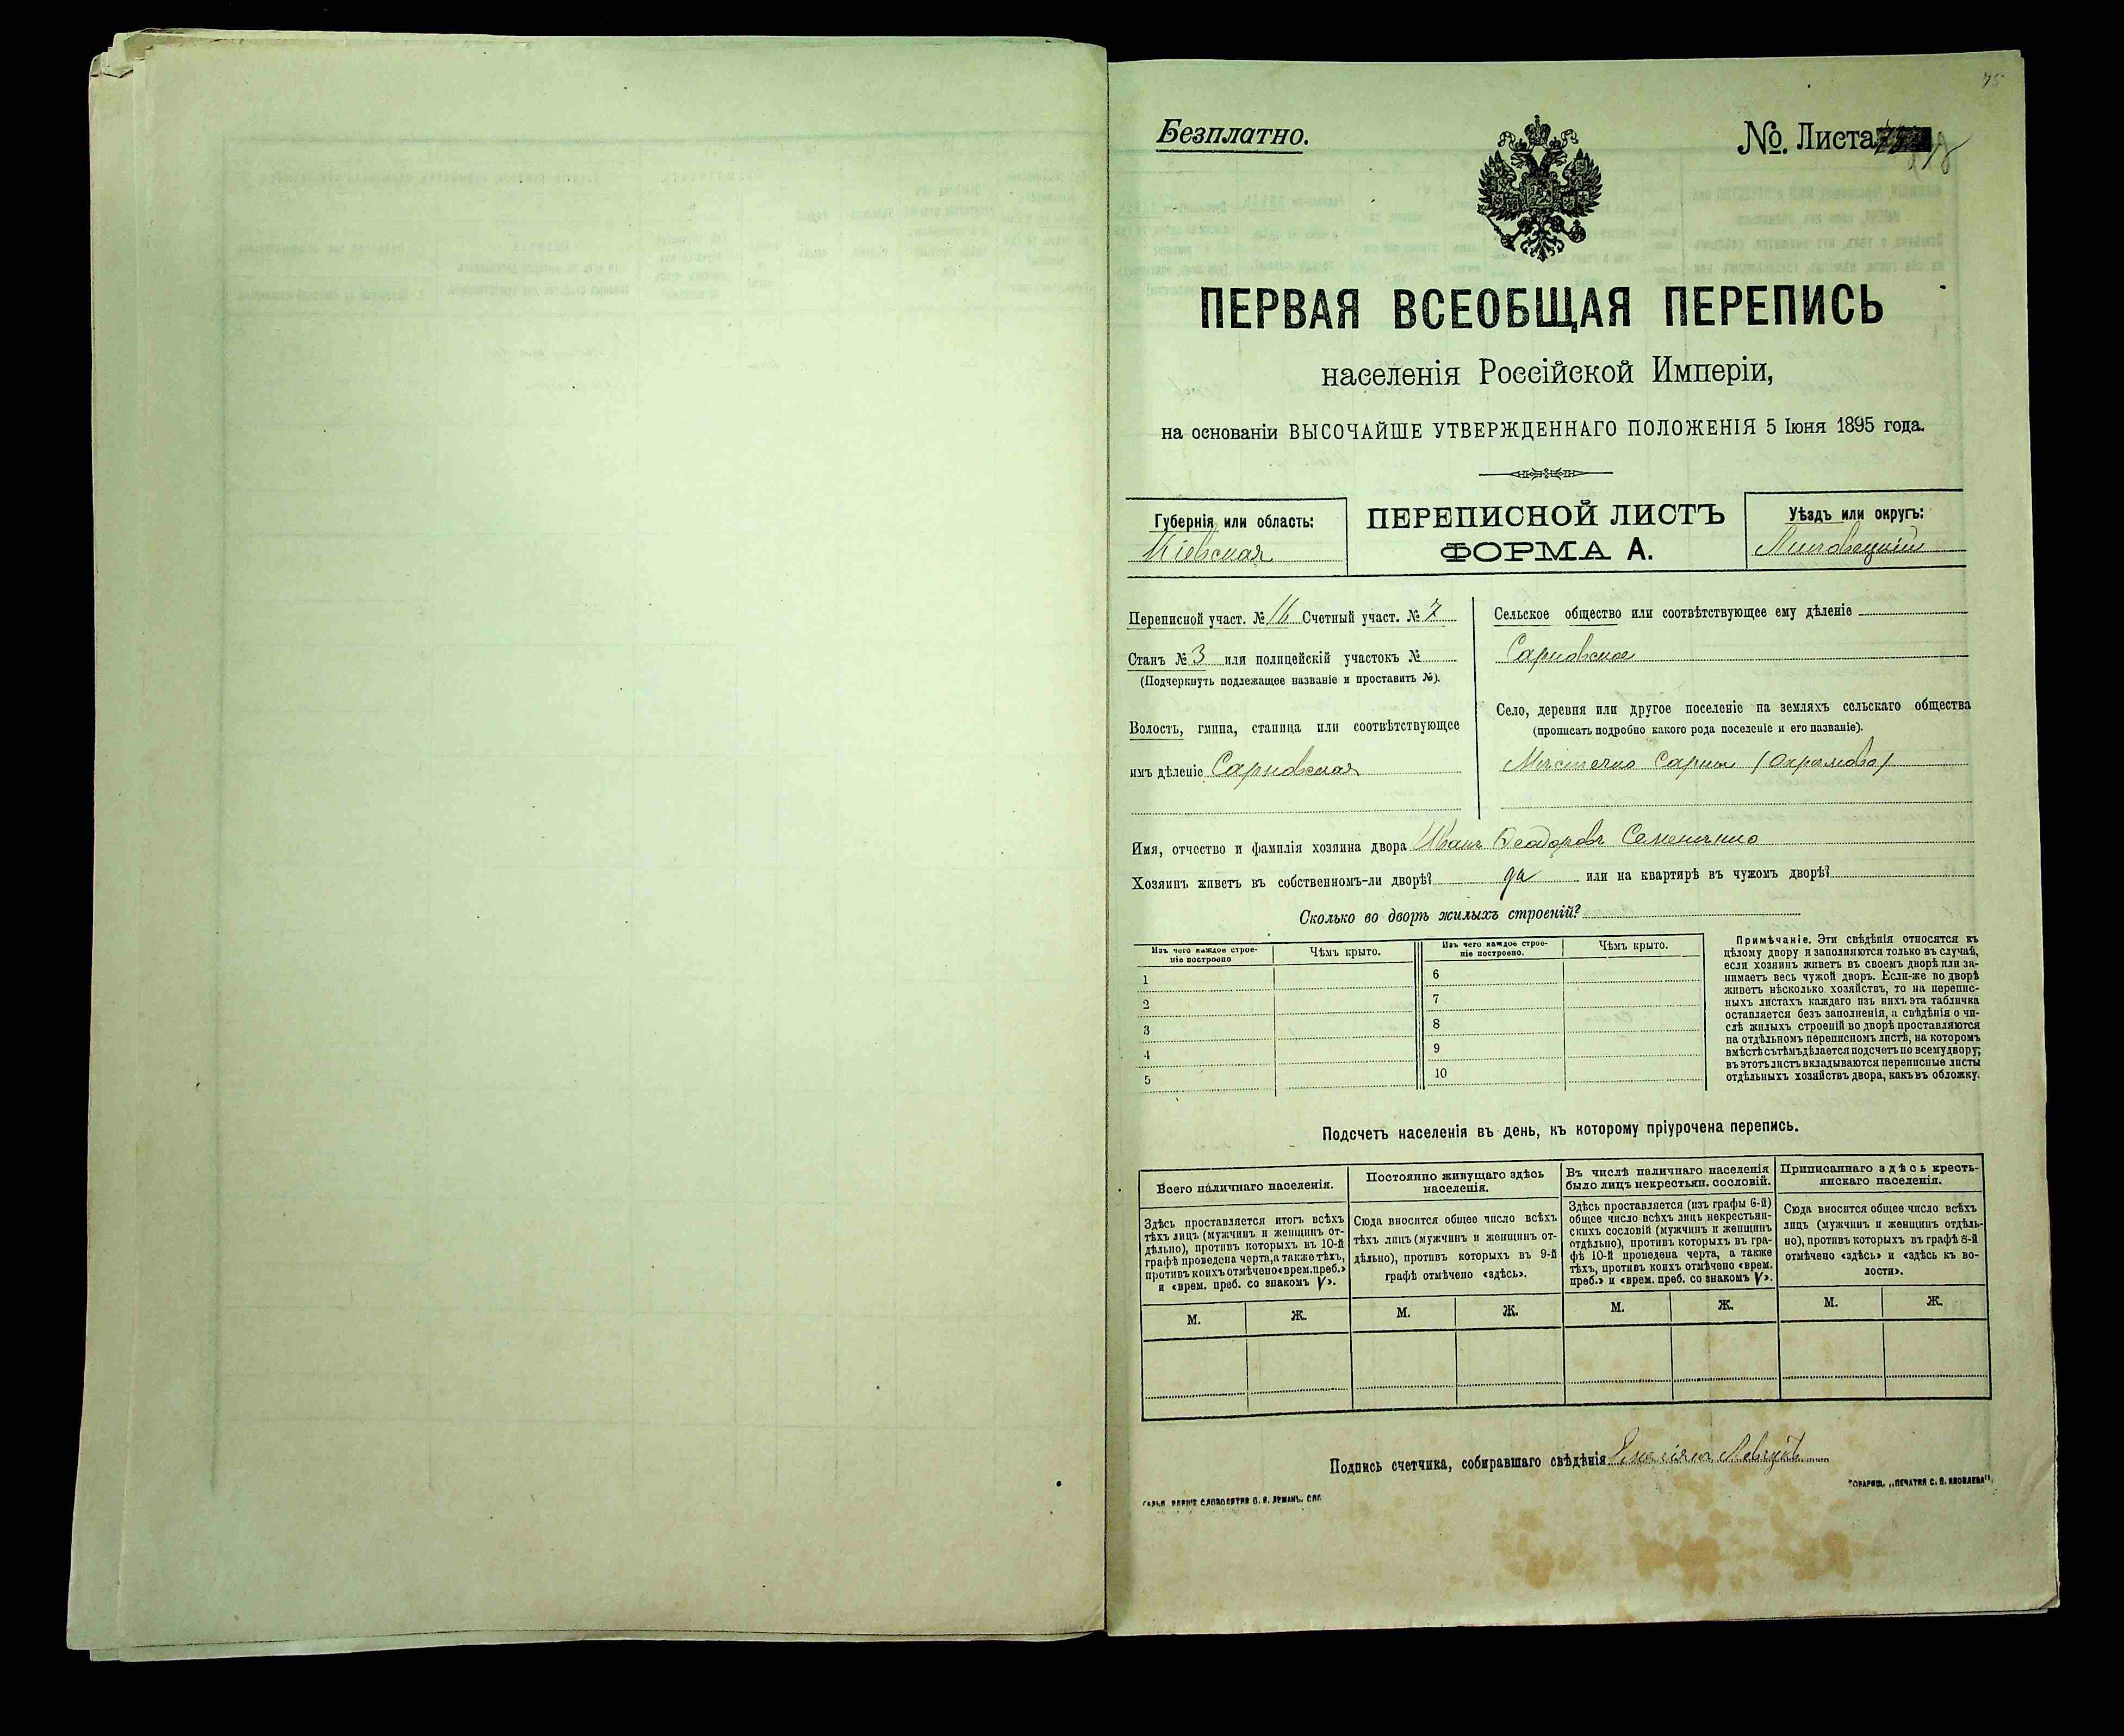 75
Безплатно.
№. Листа
ПЕРВАЯ ВСЕОБЩАЯ ПЕРЕПИСЬ
населенія Россійской Имперіи,
на основаніи ВЫСОЧАЙШЕ УТВЕРЖДЕННАГО ПОЛОЖЕНІЯ 5 Іюня 1895 года.
Губернія или область:
Кіевская
ПЕРЕПИСНОЙ ЛИСТЪ
ФОРМА А.
Уѣздъ или округъ:
Липовецкій
Переписной участ. № 16 Счетный участ. № 7
Станъ № 3 или полицейскій участокъ №
(Подчеркнуть подлежащее названіе и проставить №).
Волость, гмина, станица или соотвѣтствующее
имъ дѣленіе Сарновская
Сельское общество или соотвѣтствующее ему дѣленіе
Сарновское
Село, деревня или другое поселеніе на земляхъ сельскаго общества
(прописать подробно какого рода поселеніе и его названіе).
Мѣстечко Сарны (Охрамово)
Имя, отчество и фамилія хозяина двора Иванъ Ѳеодоровъ Семенченко
Хозяинъ живетъ въ собственномъ-ли дворѣ? да или на квартирѣ въ чужомъ дворѣ?
Сколько во дворѣ жилыхъ строеній?
Изъ чего каждое строе-
ніе построено
Чѣмъ крыто.
Изъ чего каждое строе-
ніе построено.
Чѣмъ крыто.
1
2
3
4
5
6
7
8
9
10
Примѣчаніе. Эти свѣдѣнія относятся къ
цѣлому двору и заполняются только въ случаѣ,
если хозяинъ живетъ въ своемъ дворѣ или за-
нимаетъ весь чужой дворъ. Если-же во дворѣ
живетъ нѣсколько хозяйствъ, то на перепис-
ныхъ листахъ каждаго изъ нихъ эта табличка
оставляется безъ заполненія, а свѣдѣнія о чи-
слѣ жилыхъ строеній во дворѣ проставляются
на отдѣльномъ переписномъ листѣ, на которомъ
вмѣстѣ съ тѣмъ дѣлается подсчетъ по всему двору;
въ этотъ листъ вкладываются переписные листы
отдѣльныхъ хозяйствъ двора, какъ въ обложку.
Подсчетъ населенія въ день, къ которому пріурочена перепись.
Всего наличнаго населенія.
Здѣсь проставляется итогъ всѣхъ
тѣхъ лицъ (мужчинъ и женщинъ от-
дѣльно), противъ которыхъ въ 10-й
графѣ проведена черта, а также тѣхъ,
противъ коихъ отмѣчено «врем. преб.»
и «врем. преб. со знакомъ V».
М. Ж.
Постоянно живущаго здѣсь
населенія.
Сюда вносится общее число всѣхъ
тѣхъ лицъ (мужчинъ и женщинъ от-
дѣльно), противъ которыхъ въ 9-й
графѣ отмѣчено «здѣсь».
М. Ж.
Въ числѣ наличнаго населенія
было лицъ некрестьян. сословій.
Здѣсь проставляется (изъ графы 6-й)
общее число всѣхъ лицъ некрестьян-
скихъ сословій (мужчинъ и женщинъ
отдѣльно), противъ которыхъ въ гра-
фѣ 10-й проведена черта, а также
тѣхъ, противъ коихъ отмѣчено «врем.
преб.» и «врем. преб. со знакомъ V».
М. Ж.
Приписаннаго здѣсь кресть-
янскаго населенія.
Сюда вносится общее число всѣхъ
лицъ (мужчинъ и женщинъ отдѣль-
но), противъ которыхъ въ графѣ 8-й
отмѣчено «здѣсь» и «здѣсь къ во-
лости».
М. Ж.
Подпись счетчика, собиравшаго свѣдѣнія
СЛОВОЛИТНЯ О. И. ЛЕМАНЪ, СПБ.
ТОВАРИЩ. „ПЕЧАТНЯ С. П. ЯКОВЛЕВА“